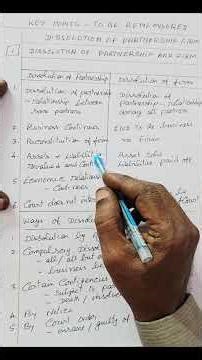 KEY POINTS - TO BE REMEMBERED
DISSOLUTION OF PARTNERSHIP FIRM
1 DISSOLUTION OF PARTNERSHIP AND FIRM
Dissolution of Partnership Dissolution of Firm
1 Dissolution of partnership Dissolution of
- relationship between Partnership - relation
some partners among all partners
2 Business Continues End to the business
3 Reconstitution of firm no firm
4 Assets & Liabilities Asset sold
Revalued and Cont Liabilities paid off
5 Economic relations
- Continues
6 Court does not Court
Ways of
1 Dissolution by
2 Compulsory Disso
- all / all but
- business
3 Certain Contingencies
- subject to
- death / insolv
4 By Notice
5 By Court order
- insane / guilty of